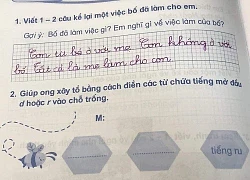 1. Viết 1 – 2 câu kể lại một việc bố đã làm cho em.
Gợi ý: Bố đã làm việc gì? Em nghĩ gì về việc làm của bố?
Con tự bé ở với mẹ Con không ở với
bố. Tất cả là mẹ làm cho con
2. Giúp ong xây tổ bằng cách điền các từ chứa tiếng mở đầu
d hoặc r vào chỗ trống.
M:
tiếng ru